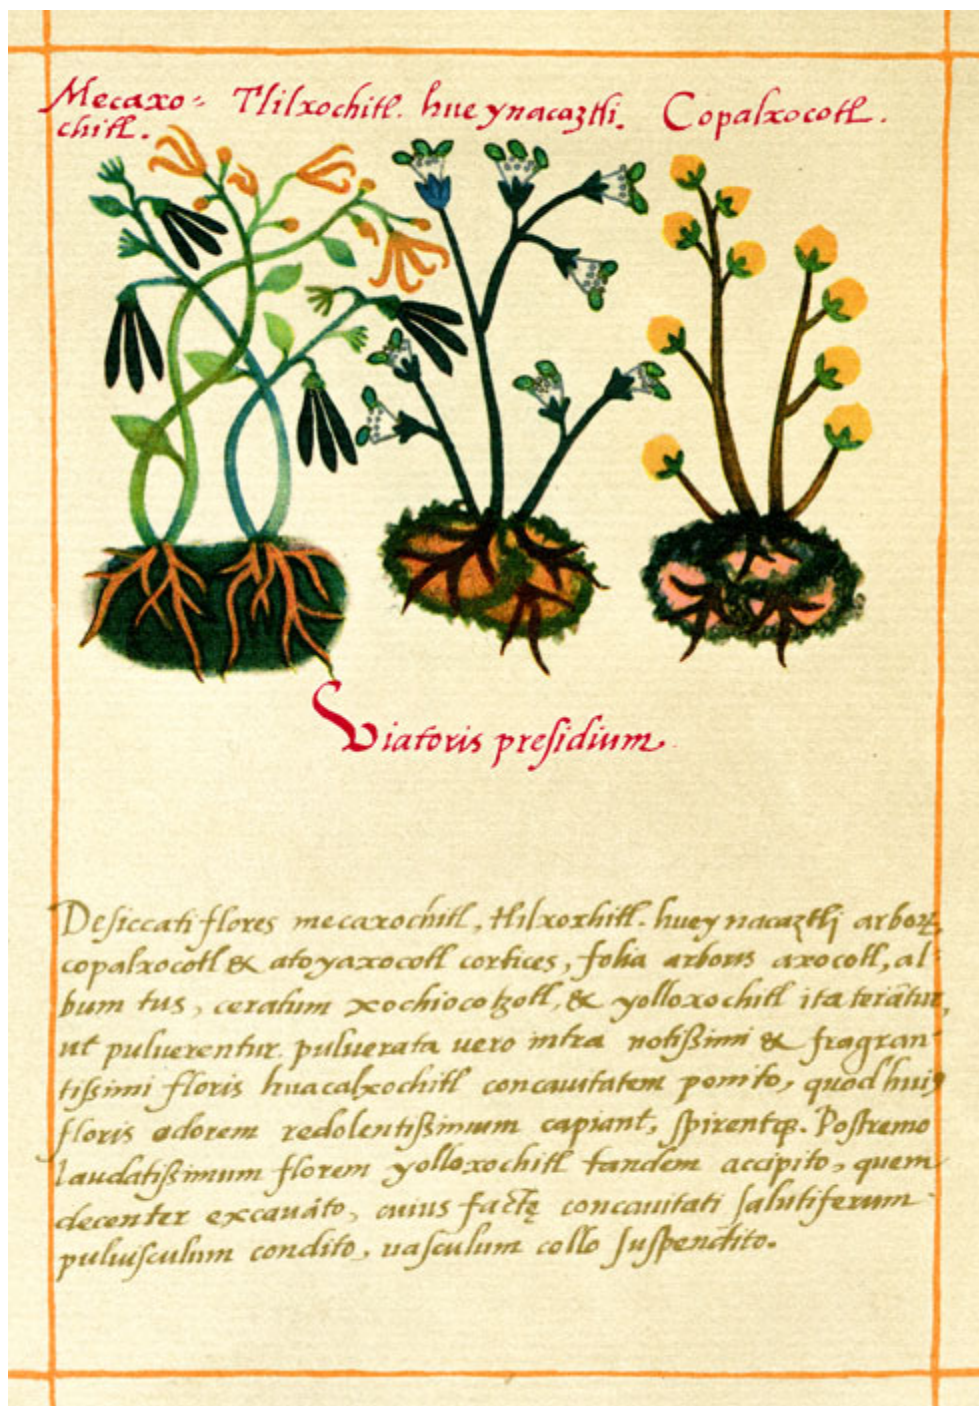 Mecaxo= Tlilxochitl. hueynacaztli. Copalxocotl.
chitl.
Viatoris presidium
Desiccati flores mecaxochitl, tlilxoxhitl. huey nacaztli arboꝝ,
copalxocotl & atoyaxocotl cortices, folia arboris axocotl, al=
bum tus, ceratum xochiocotzotl, & yolloxochitl ita terātur,
ut puluerentur. puluerata uero intra notißimi & fragran=
tißimi floris huacalxochitl concauitatem ponito, quod huiꝰ
floris odorem redolentißimum capiant, spirentqꝫ. Postremo
laudatißimum florem yolloxochitl tandem accipito, quem
decenter excauāto, cuius factę concauitati salutiferum
puluisculum condito, uasculum collo suspendito.